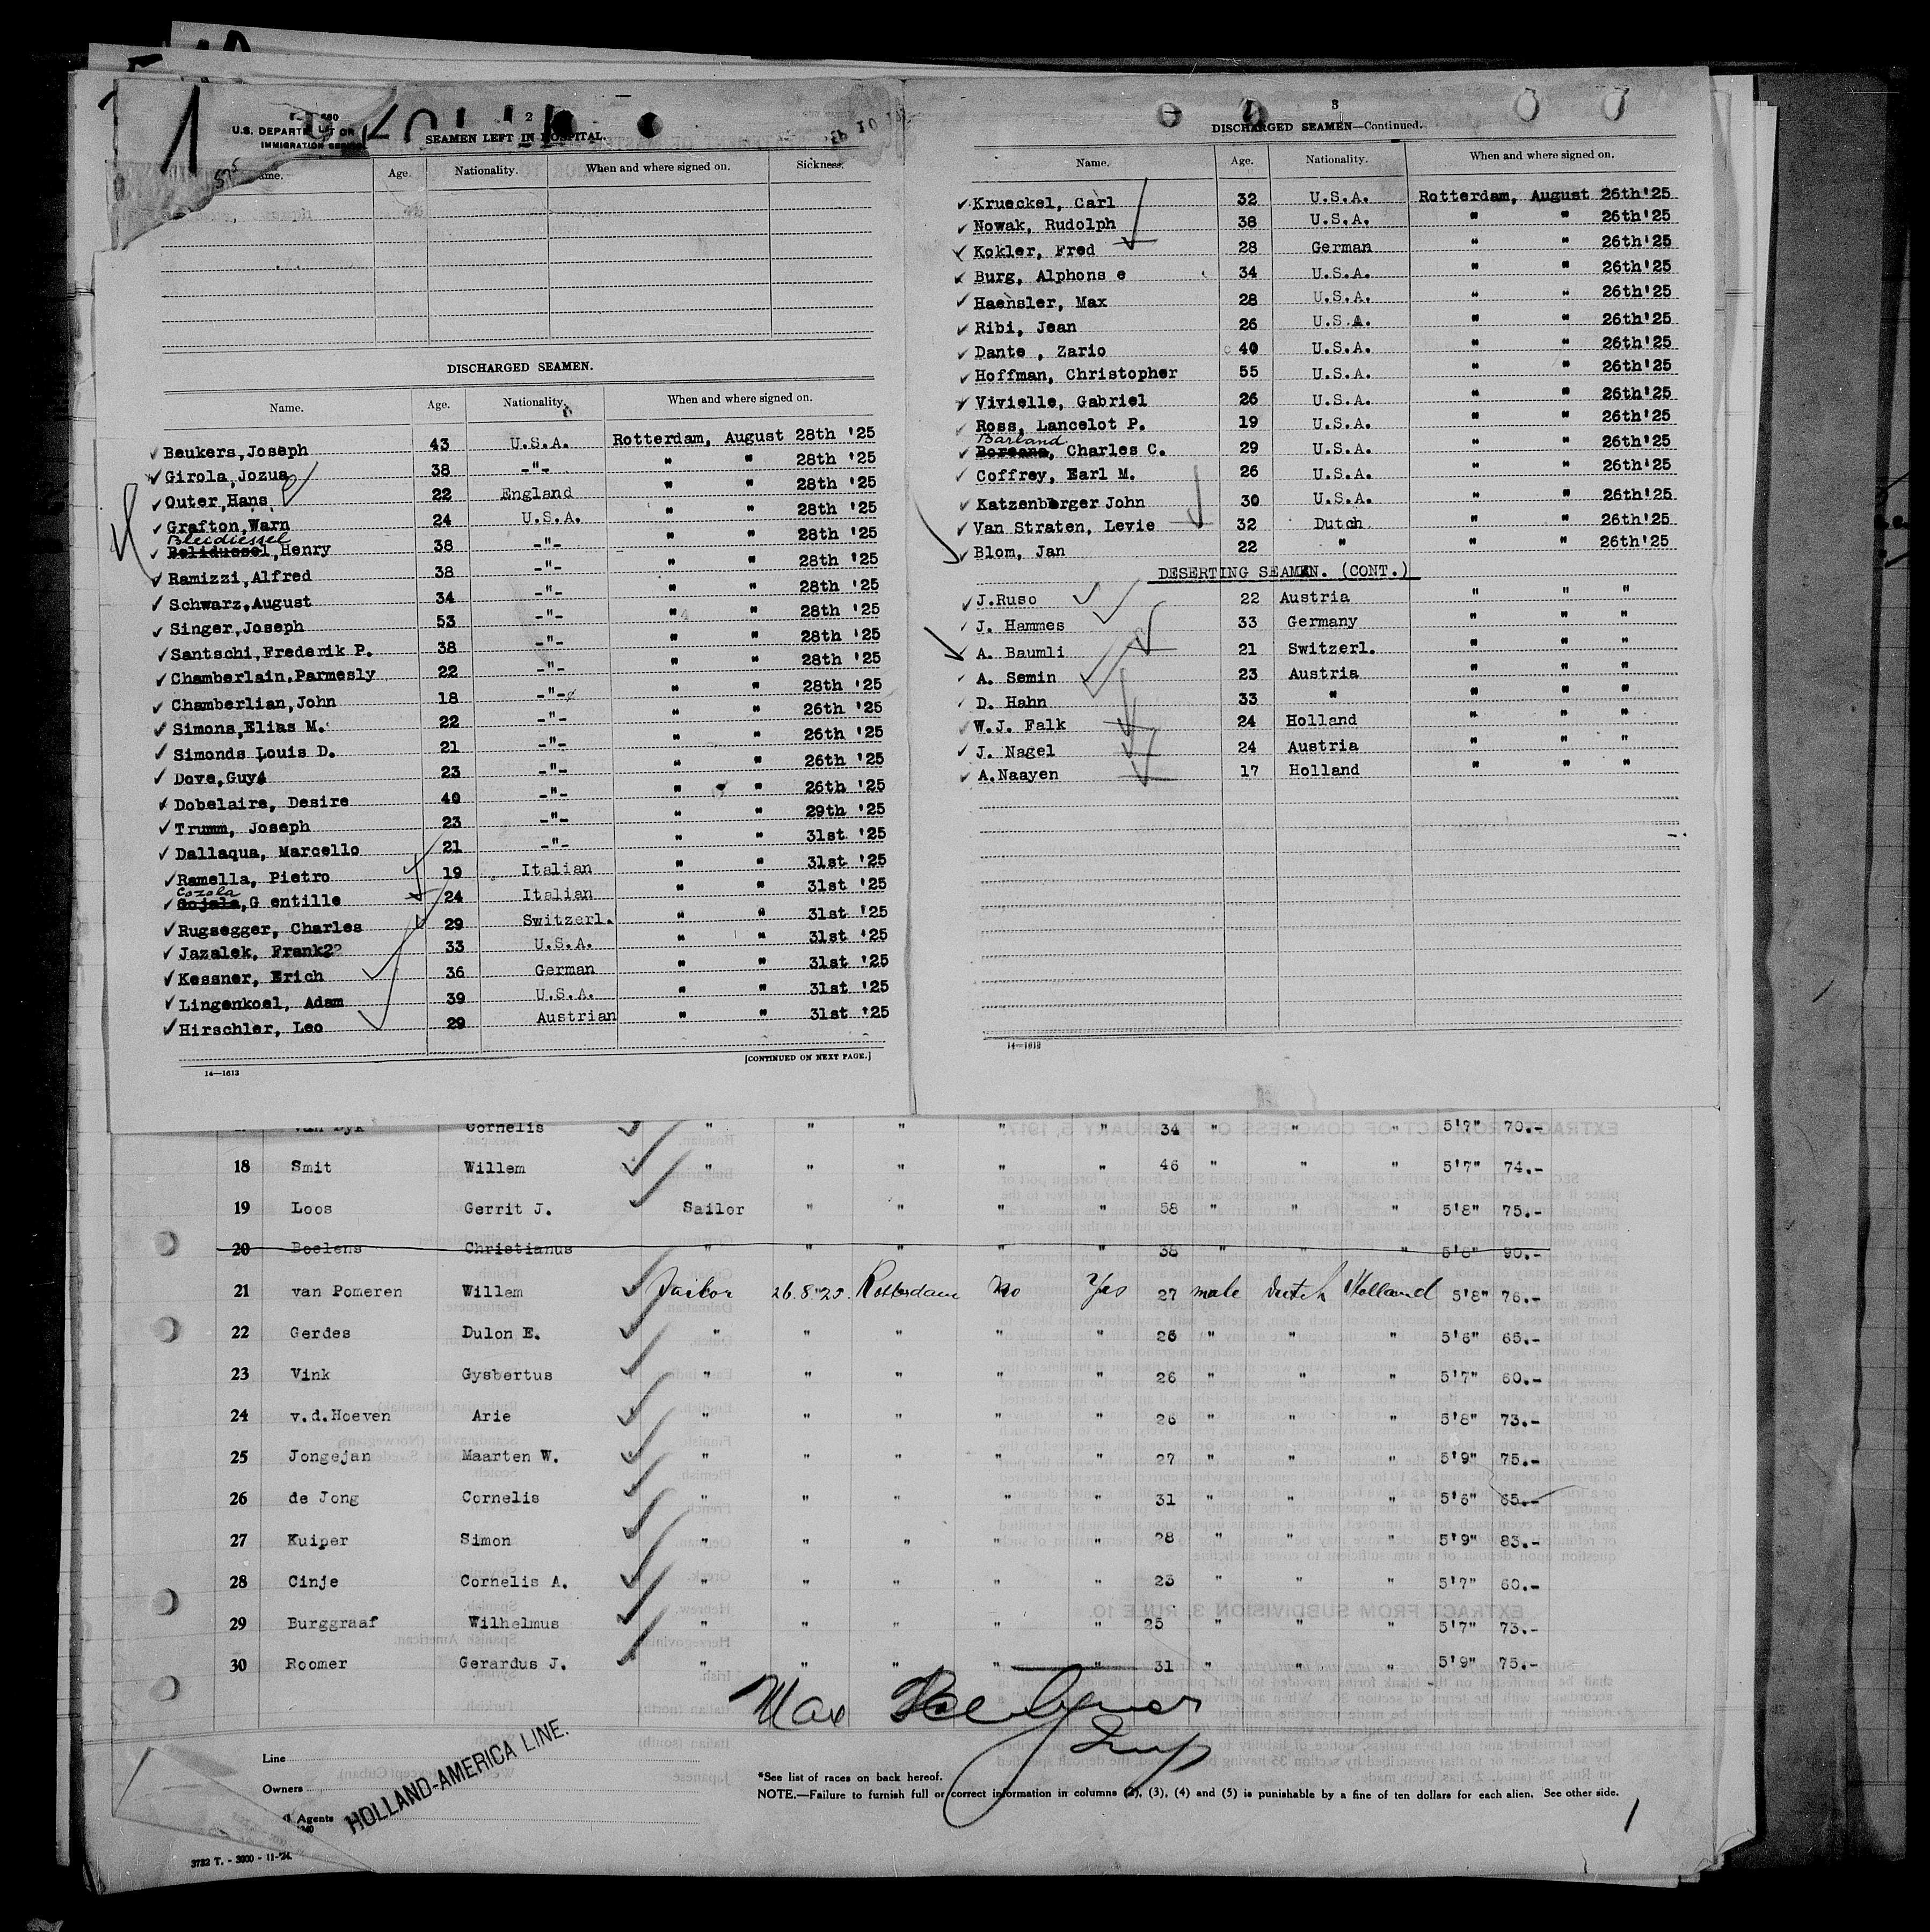 1
U.S. DEPARTMENT OF
IMMIGRATION
575
2
SEAMEN LEFT IN HOSPITAL.
Age. Nationality. When and where signed on. Sickness.
DISCHARGED SEAMEN.
Name. Age. Nationality. When and where signed on.
Beukers,Joseph 43 U.S.A. Rotterdam, August 28th '25
Girola,Jozua 38 -"- " " 28th '25
Outer,Hans 22 England " " 28th '25
Grafton,Warn 24 U.S.A. " " 28th '25
Bleidiessel
Belidussel,Henry 38 -"- " " 28th '25
Ramizzi,Alfred 38 -"- " " 28th '25
Schwarz,August 34 -"- " " 28th '25
Singer,Joseph 53 -"- " " 28th '25
Santschi,Frederik P. 38 -"- " " 28th '25
Chamberlain,Parmesly 22 -"- " " 28th '25
Chamberlian,John 18 -"- " " 28th '25
Simons,Elias M. 22 -"- " " 26th '25
Simonds Louis D. 21 -"- " " 26th '25
Dove,Guy 23 -"- " " 26th '25
Dobelaire, Desire 40 -"- " " 26th '25
Trumm, Joseph 23 -"- " " 29th '25
Dallaqua, Marcello 21 -"- " " 31st '25
Ramella, Pietro 19 Italian " " 31st '25
Cozola
Gojala,G entille 24 Italian " " 31st '25
Rugsegger, Charles 29 Switzerl. " " 31st '25
Jazalek, Frank 33 U.S.A. " " 31st '25
Kessner, Erich 36 German " " 31st '25
Lingenkoel, Adam 39 U.S.A. " " 31st '25
Hirschler, Leo 29 Austrian " " 31st '25
[CONTINUED ON NEXT PAGE.]
14—1613
3
DISCHARGED SEAMEN—Continued.
Name. Age. Nationality. When and where signed on.
Krueckel, Carl 32 U.S.A. Rotterdam, August 26th'25
Nowak, Rudolph 38 U.S.A. " " 26th'25
Kokler, Fred 28 German " " 26th'25
Burg, Alphons e 34 U.S.A. " " 26th'25
Haensler, Max 28 U.S.A. " " 26th'25
Ribi, Jean 26 U.S.A. " " 26th'25
Dante , Zario 40 U.S.A. " " 26th'25
Hoffman, Christopher 55 U.S.A. " " 26th'25
Vivielle, Gabriel 26 U.S.A. " " 26th'25
Ross, Lancelot P. 19 U.S.A. " " 26th'25
Barland
Boreana, Charles C. 29 U.S.A. " " 26th'25
Coffrey, Earl M. 26 U.S.A. " " 26th'25
Katzenberger John 30 U.S.A. " " 26th'25
Van Straten, Levie 32 Dutch " " 26th'25
Blom, Jan 22 " " " 26th'25
DESERTING SEAMEN. (CONT.)
J.Ruso 22 Austria " " "
J. Hammes 33 Germany " " "
A. Baumli 21 Switzerl. " " "
A. Semin 23 Austria " " "
D. Hahn 33 " " " "
W.J. Falk 24 Holland " " "
J. Nagel 24 Austria " " "
A.Naayen 17 Holland " " "
14—1613
van Dyk Cornelis " " " " " 34 " " " 5'7" 70.-
18 Smit Willem " " " " " 46 " " " 5'7" 74.-
19 Loos Gerrit J. Sailor " " " " 58 " " " 5'8" 75.-
20 Boelens Christianus " " " " " 38 " " " 5'6" 90.-
21 van Pomeren Willem Sailor 26.8.'25. Rotterdam No Yes 27 male dutch Holland 5'8" 76.-
22 Gerdes Dulon E. " " " " " 26 " " " 5'6" 65.-
23 Vink Gysbertus " " " " " 26 " " " 5'7" 60.-
24 v.d.Hoeven Arie " " " " " 26 " " " 5'8" 73.-
25 Jongejan Maarten W. " " " " " 27 " " " 5'9" 75.-
26 de Jong Cornelis " " " " " 31 " " " 5'6" 65.-
27 Kuiper Simon " " " " " 28 " " " 5'9" 83.-
28 Cinje Cornelis A. " " " " " 23 " " " 5'7" 60.-
29 Burggraaf Wilhelmus " " " " " 25 " " " 5'7" 73.-
30 Roomer Gerardus J. " " " " " 31 " " " 5'9" 75.-
Max
Insp
Line
Owners
Agents
HOLLAND-AMERICA LINE.
*See list of races on back hereof.
NOTE.—Failure to furnish full or correct information in columns (2), (3), (4) and (5) is punishable by a fine of ten dollars for each alien. See other side.
3732 T. - 3000 - 11-'24.
1